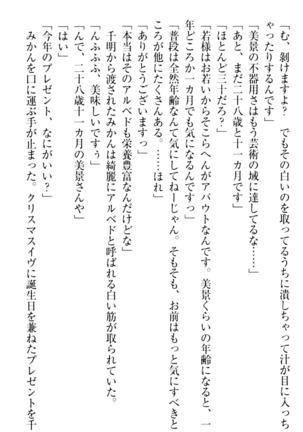 「む、剝けますよ？　でもその白いのを取ってるうちに潰しちゃって汁が目に入っち
ゃったりするんです」
「美景の不器用さはもう芸術の域に達してるな……」
「あと、まだ二十八歳と十一カ月です」
「ほとんど三十だろ？」
「若様はお若いからそこらへんがアバウトなんです。美景くらいの年齢になると、一
年どころか一カ月でも気になるんです」
「普段は全然年齢なんて気にしてねーじゃん。そもそも、お前はもっと気にすべきと
ころが他にたくさんある。……ほれ」
「ありがとうございますっ」
「本当はそのアルベドも栄養豊富なんだけどな」
千明から渡されたみかんは綺麗にアルベドと呼ばれる白い筋が取られていた。
「んふふふ、美味しいですぅ」
「んで、二十八歳十一カ月の美景さんや」
「はい」
「今年のプレゼント、なにがいい？」
みかんを口に運ぶ手が止まった。クリスマスイヴに誕生日を兼ねたプレゼントを千